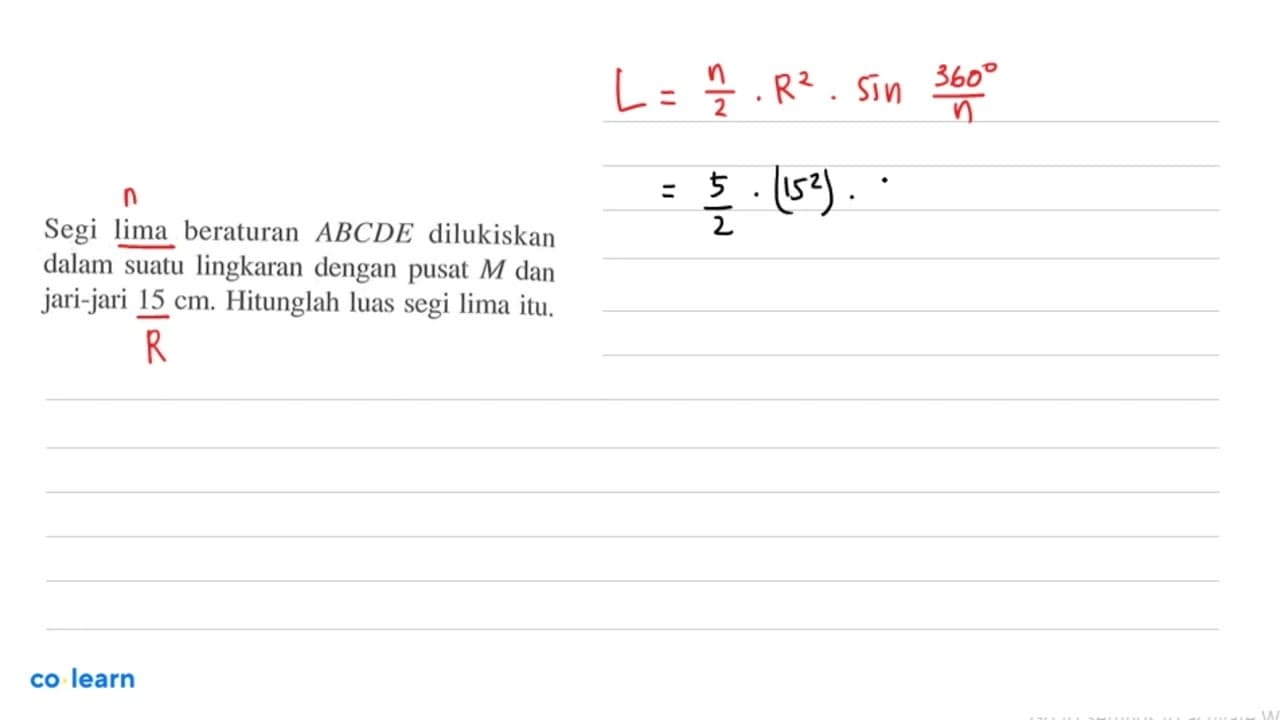 L = n/2 . R² . sin 360°/n
= 5/2 . (15²) .
n
Segi lima beraturan ABCDE dilukiskan
dalam suatu lingkaran dengan pusat M dan
jari-jari 15 cm. Hitunglah luas segi lima itu.
R
co learn